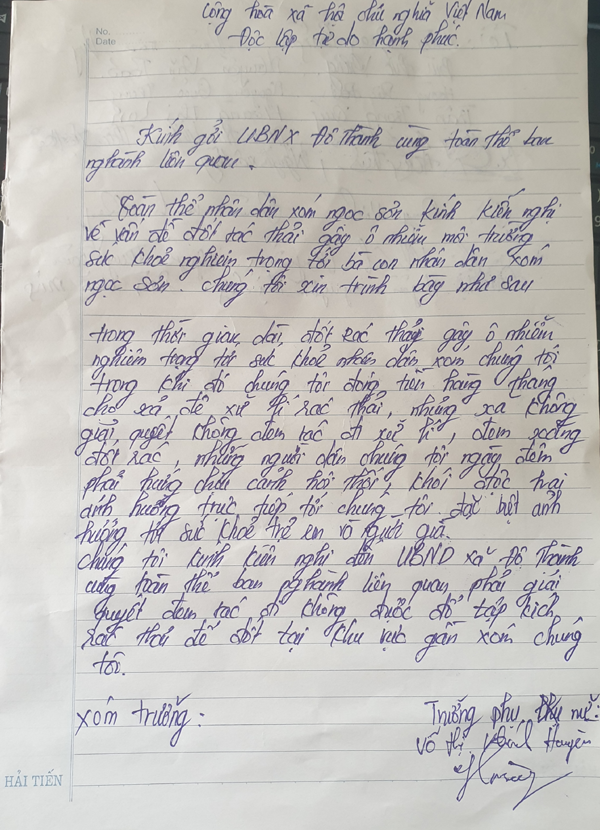 Cộng hòa xã hội chủ nghĩa Việt Nam
Độc lập tự do hạnh phúc.
No.
Date
Kính gửi UBNX Đô Thành cùng toàn thể ban
nghành liên quan.
Toàn thể nhân dân xóm ngọc sơn kính kiến nghị
về vấn đề đốt rác thải gây ô nhiễm môi trường
sức khoẻ nghiêm trong tới bà con nhân dân xóm
ngọc sơn. chúng tôi xin trình bày như sau
trong thời gian dài, đốt rác thải gây ô nhiễm
nghiêm trạng tới sức khoẻ nhân dân xóm chúng tôi
trong khi đó chúng tôi đóng tiền hàng tháng
cho xả để xử lí rác thải, nhưng xa không
giải quyết không đem rác đi xử lí, đem xăng
đốt rác, những người dân chúng tôi ngày đêm
phải hứng chịu cảnh hôi thối, khói độc hại
ảnh hưởng trực tiếp tới chúng tôi. đặc biệt ảnh
hưởng tới sức khoẻ trẻ em và người già.
chúng tôi kính kiến nghị đến UBND xã Đô Thành
cùng toàn thể ban nghành liên quan phải giải
quyết đem rác đi không được đổ tập kích
rác thải để đốt tại khu vực gần xóm chúng
tôi.
xóm trưởng:
Trưởng phụ nữ:
Võ thị Huyền
HẢI TIẾN